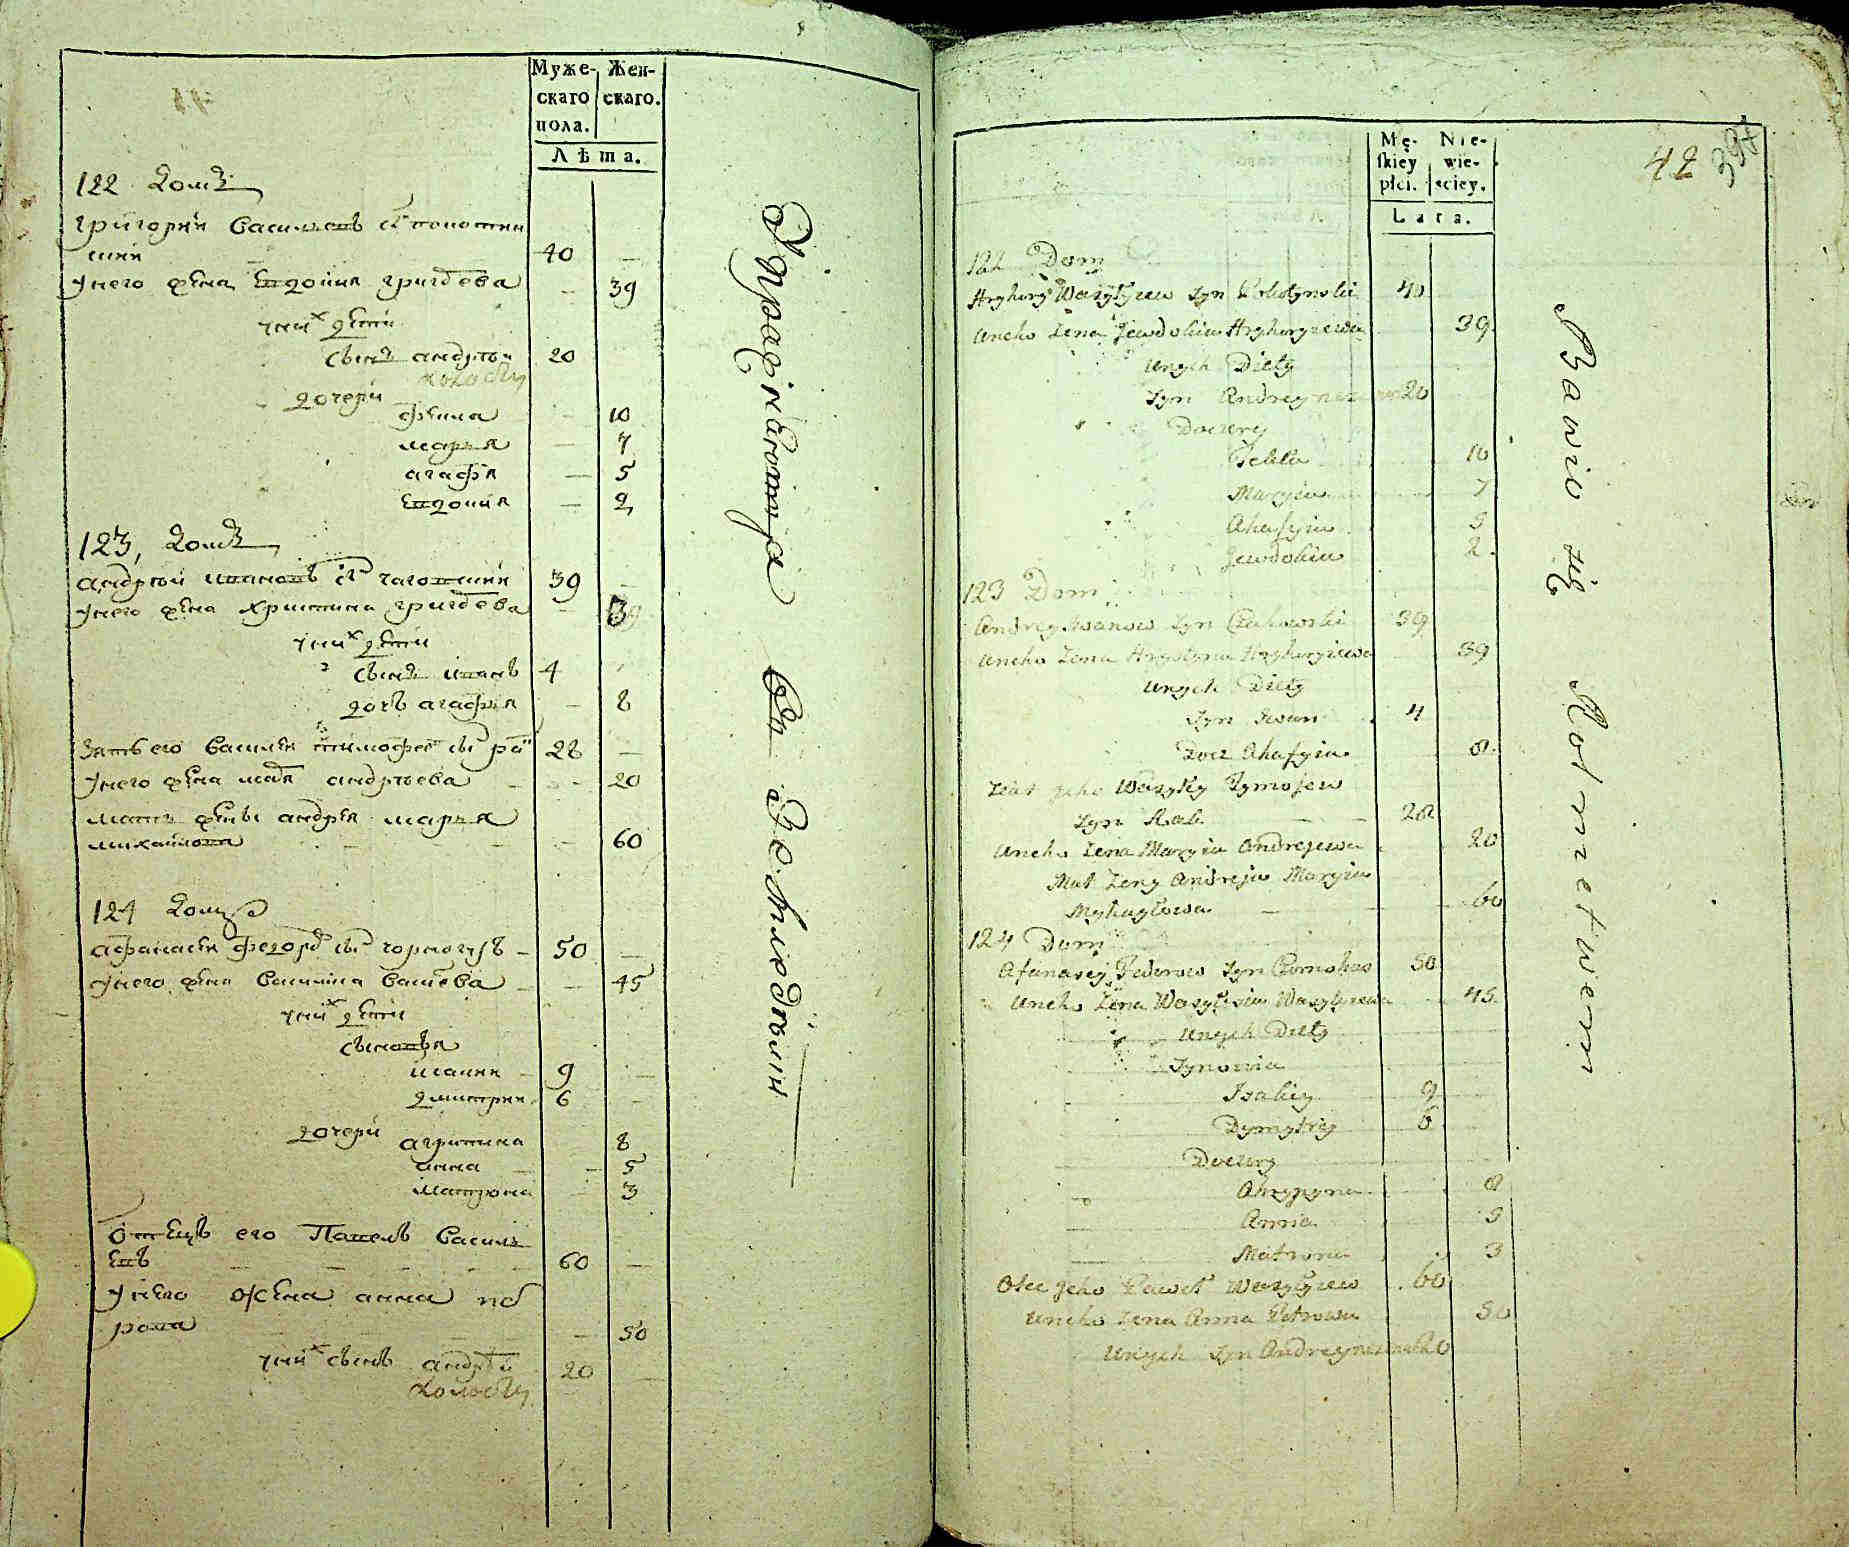 Муже-
скаго
пола.
Жен-
скаго.
Лѣта.
122 домъ
григорий василевъ сн
40
у него жена Евдокия григорева 39
у них дети
сынъ андрѣй 20
холостъ
дочери
фекла 10
марья 7
агафя 5
Евдокия 2
123, домъ
андрѣй ивановъ сн 39
у него жена христина григорева 39
у них дети
сынъ иванъ 4
дочь агафья 8
зять его василеи тимофев сн 28
у него жена маря андрѣева 20
мать жены андрея марья
михайлова 60
124 домъ
афанасеи федоров сн чорногузъ 50
у него жена василиса василева 45
у них дети
сыновья
исакии 9
димитрии 6
дочери агрипина 8
анна 5
матрона 3
отецъ его Павелъ василь
евъ 60
у него жена анна пет
рова 50
у них сынъ андрѣй 20
холостъ
Упражняются въ Земледѣлии
Mę-
skiey
płci.
Nie-
wie-
sciey.
Lata.
42
397
122 Dom
Hryhory Wasylyiew syn 40
Uneho Zena Jewdokiia Hryhoryiewa 39
Unych Diety
Syn Andrey 20
Doczery
Tekla 10
Maryia 7
Ahafyia 5
Jewdokiia 2
123 Dom
Andrey Iwanow Syn 39
Uneho Zena Hrystyna Hryhoryiewa 39
Unych Diety
Syn Iwan 4
Docz Ahafyia 8
Ziat jeho Wasyley Tymofiew
Syn Rab. 28
Uneho Zena Maryia Andrejewa 20
Mat Zeny Andreja Maryia
Mychayłowa 60
124 Dom
Afanasiy Fedorow Syn Czornohus 50
Uneho Zena Wasylisia Wasylyiewa 45
Unych Diety
Synowia
Isakiy 9
Dymytriy 6
Doczery
Ahrypyna 8
Anna 5
Matrona 3
Otec jeho Paweł Wasylyiew 60
Uneho Zena Anna Petrowa 50
Unych Syn Andrey 20
Bawio się Rolnictwem